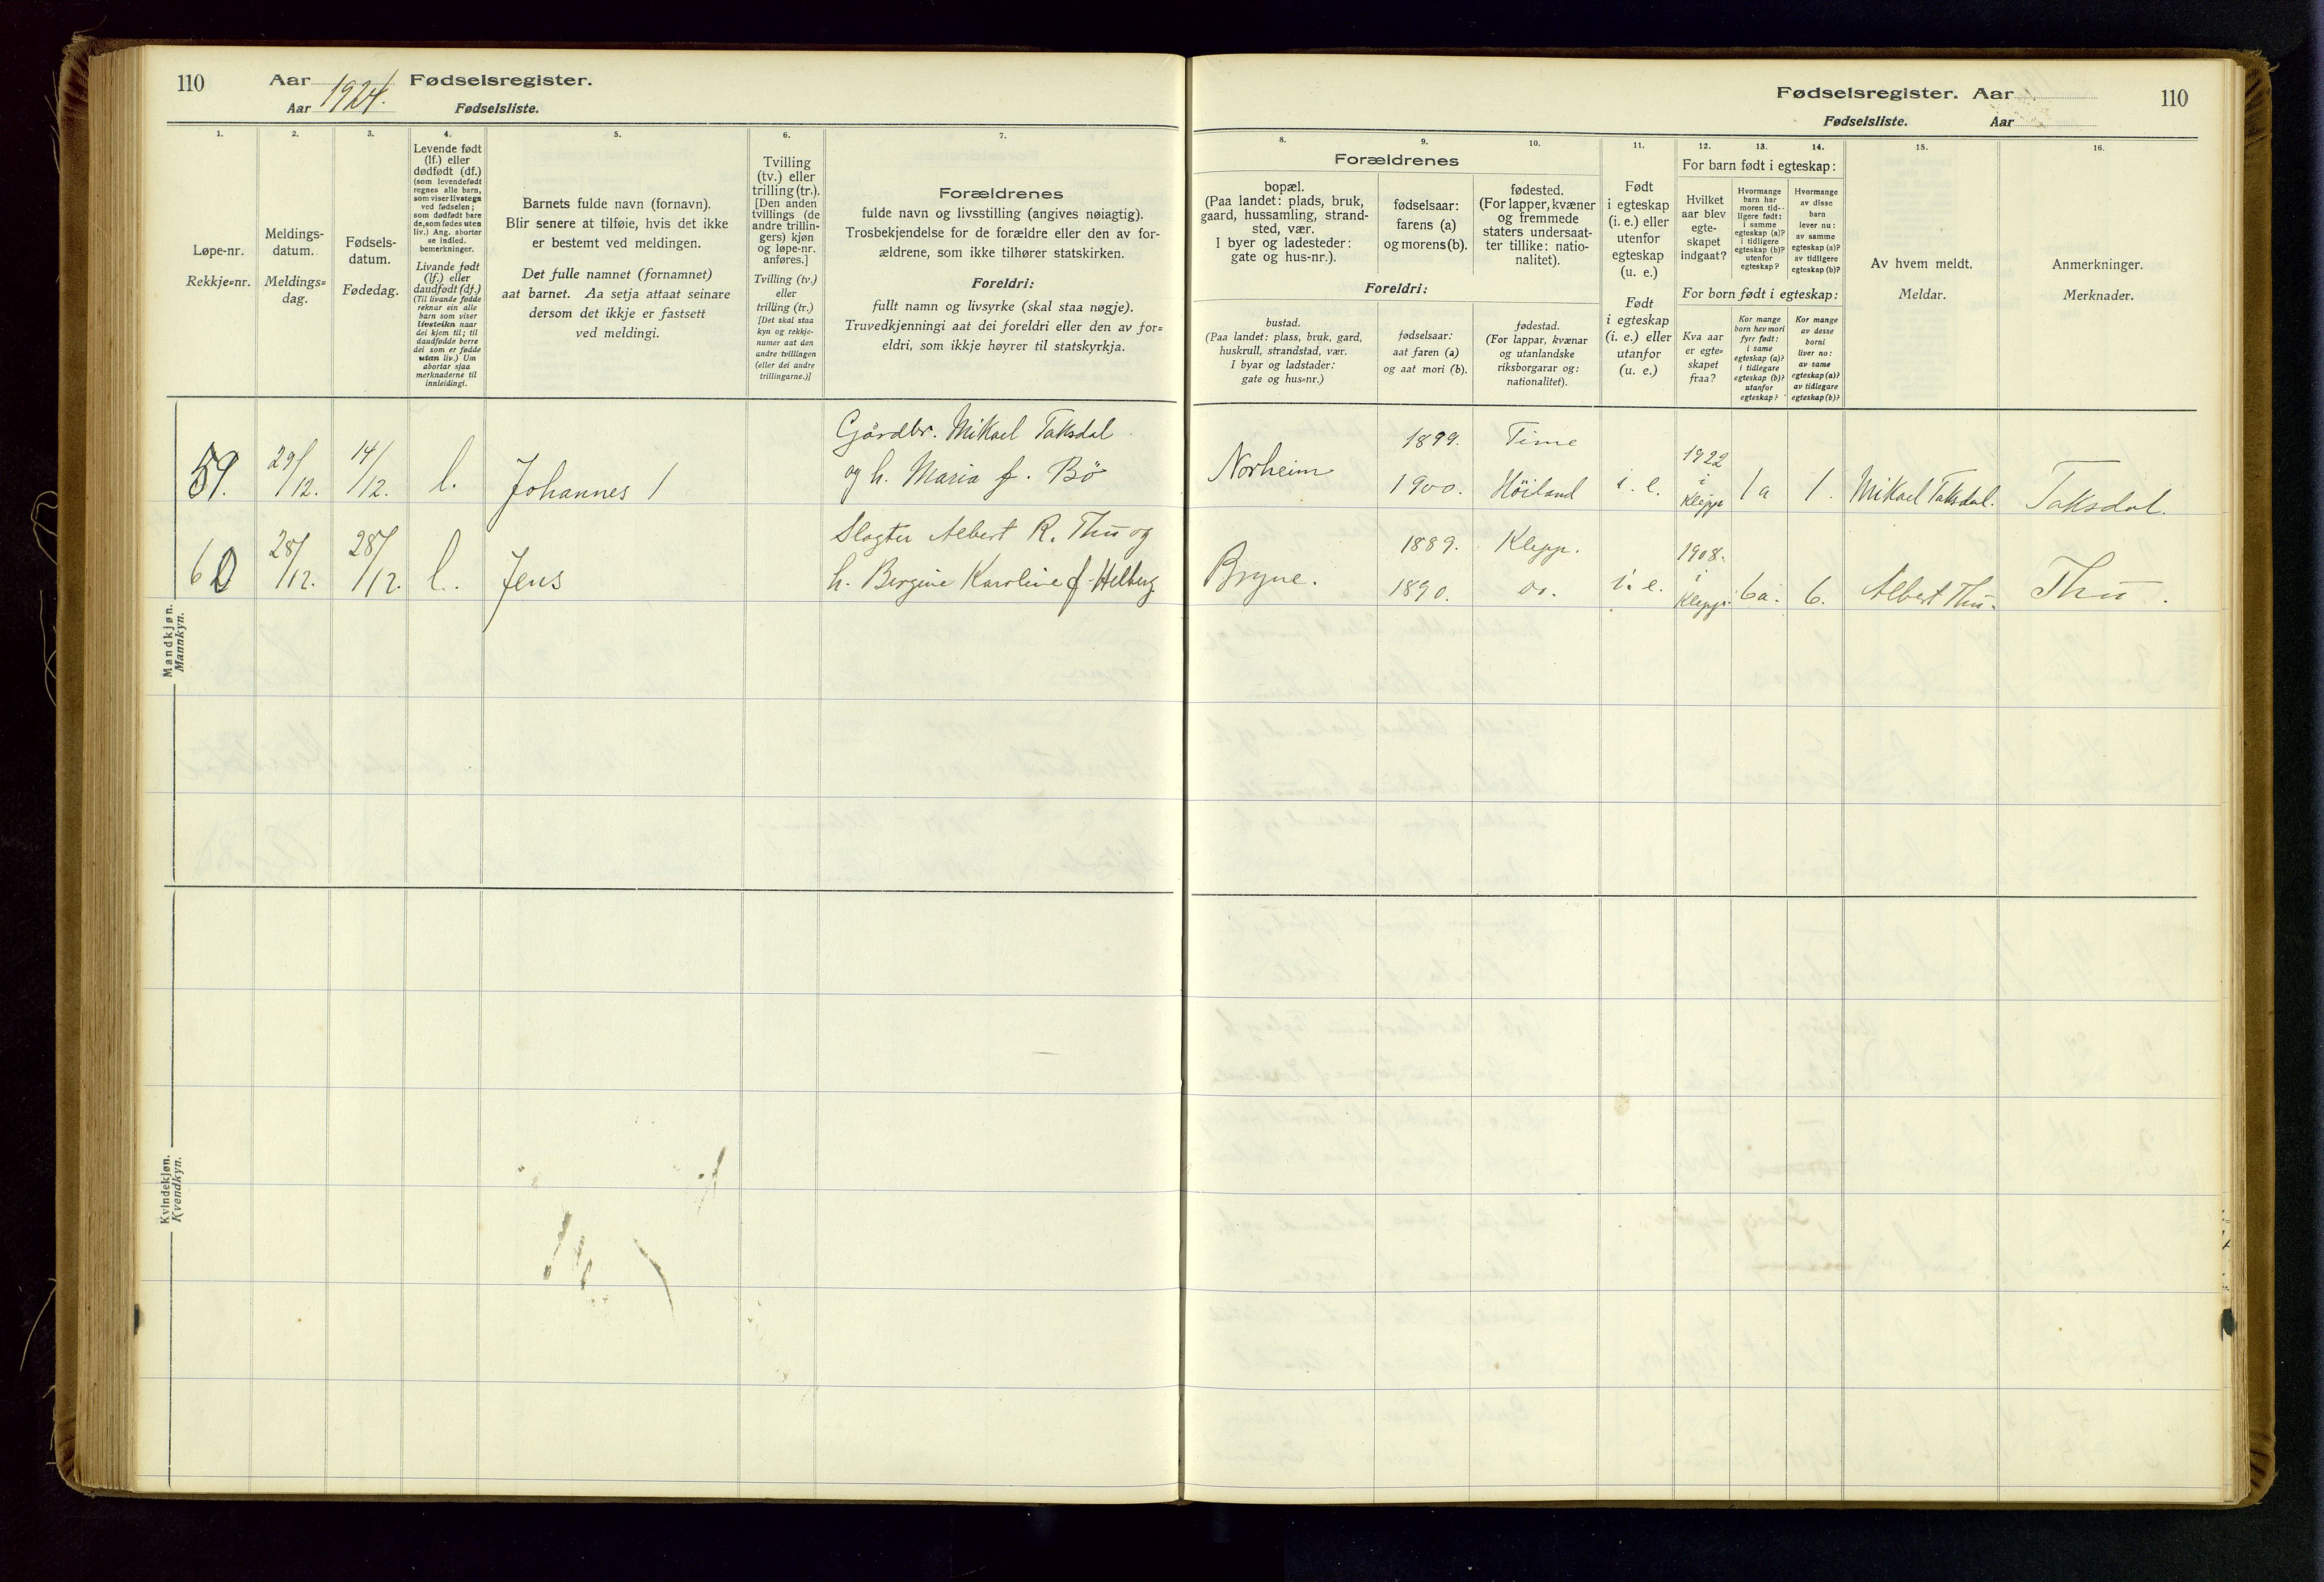 110 Aar 1924. Fødselsregister.
Aar Fødselsliste.
Fødselsregister. Aar 110
Fødselsliste. Aar
1.
Løpe-nr.
Rekkje=nr.
2.
Meldings-
datum.
Meldings=
dag.
3.
Fødsels-
datum.
Fødedag.
4.
Levende født
(lf.) eller
dødfødt (df.)
(som levendefødt
regnes alle barn,
som viser livstegn
ved fødselen;
som dødfødt bare
de, som fødes uten
liv.) Ang. aborter
se indled.
bemerkninger.
Livande født
(lf.) eller
daudfødt (df.)
(Til livande fødde
reknar ein alle
barn som viser
livsteikn naar
dei kjem til; til
daudfødde berre
dei som er fødde
utan liv.) Um
abortar sjaa
merknaderne til
innleidingi.
5.
Barnets fulde navn (fornavn).
Blir senere at tilføie, hvis det ikke
er bestemt ved meldingen.
Det fulle namnet (fornamnet)
aat barnet. Aa setja attaat seinare
dersom det ikkje er fastsett
ved meldingi.
6.
Tvilling
(tv.) eller
trilling (tr.).
[Den anden
tvillings (de
andre trillin-
gers) kjøn
og løpe-nr.
anføres.]
Tvilling (tv.)
eller
trilling (tr.)
[Det skal staa
kyn og rekkje-
numer aat den
andre tvillingen
(eller dei andre
trillingarne.)]
7.
Forældrenes
fulde navn og livsstilling (angives nøiagtig).
Trosbekjendelse for de forældre eller den av for-
ældrene, som ikke tilhører statskirken.
Foreldri:
fullt namn og livsyrke (skal staa nøgje).
Truvedkjenningi aat dei foreldri eller den av for=
eldri, som ikkje høyrer til statskyrkja.
8. 9. 10.
Forældrenes
bopæl.
(Paa landet: plads, bruk,
gaard, hussamling, strand-
sted, vær.
I byer og ladesteder:
gate og hus-nr.).
fødselsaar:
farens (a)
og morens (b).
fødested.
(For lapper, kvæner
og fremmede
staters undersaat-
ter tillike: natio-
nalitet).
Foreldri:
bustad.
(Paa landet: plass, bruk, gard,
huskrull, strandstad, vær.
I byar og ladstader:
gate og hus=nr.)
fødselsaar:
aat faren (a)
og aat mori (b).
fødestad.
(For lappar, kvænar
og utanlandske
riksborgarar og:
nationalitet).
11.
Født
i egteskap
(i. e.) eller
utenfor
egteskap
(u. e.)
Født
i egteskap
(i. e.) eller
utanfor
(u. e.)
12. 13. 14.
For barn født i egteskap:
Hvilket
aar blev
egte-
skapet
indgaat?
Hvormange
barn har
moren tid-
ligere født:
i samme
egteskap (a)?
i tidligere
egteskap (b)?
utenfor
egteskap?
Hvormange
av disse
barn
lever nu:
av samme
egteskap (a)?
av tidligere
egteskap (b)?
For born født i egteskap:
Kva aar
er egte=
skapet
fraa?
Kor mange
born hev mori
fyrr født:
i same
egteskap (a)?
i tidlegare
egteskap (b)?
utanfor
egteskap?
Kor mange
av desse
borni
liver no:
av same
egteskap (a)?
av tidlegare
egteskap (b)?
15.
Av hvem meldt.
Meldar.
16.
Anmerkninger.
Merknader.
Mandkjøn.
Mannkyn.
59. 29/12. 14/12. l. Johannes /
Gårdbr. Mikael Taksdal
og h. Maria f. Bö
Norheim 1899. Time
1900. Höiland
i. e. 1922
i
Klepp 1a 1. Mikael Taksdal. Taksdal.
60 28/12. 28/12. l. Jens
Slagter Albert R. Thu og
h. Bergine Karoline f. Helberg.
Bryne. 1889. Klepp.
1890. do.
i. e. 1908.
i
Klepp. 6a. 6. Albert Thu. Thu.
Kvindekjøn.
Kvendkyn.